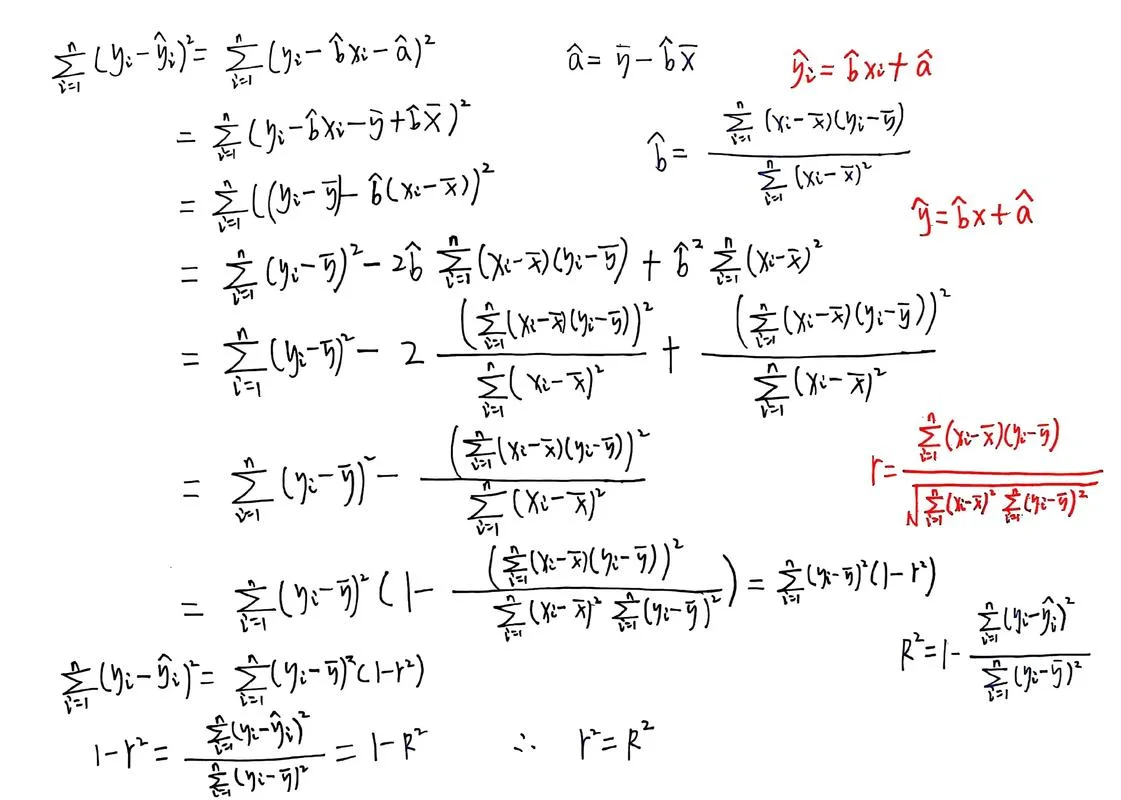 $\sum_{i=1}^{n}(y_i-\hat{y}_i)^2 = \sum_{i=1}^{n}(y_i-\hat{b}x_i-\hat{a})^2$
$\hat{a}=\bar{y}-\hat{b}\bar{x}$
$\hat{y}_i=\hat{b}x_i+\hat{a}$
$=\sum_{i=1}^{n}(y_i-\hat{b}x_i-\bar{y}+\hat{b}\bar{x})^2$
$\hat{b}=\frac{\sum_{i=1}^{n}(x_i-\bar{x})(y_i-\bar{y})}{\sum_{i=1}^{n}(x_i-\bar{x})^2}$
$=\sum_{i=1}^{n}((y_i-\bar{y})-\hat{b}(x_i-\bar{x}))^2$
$\hat{y}=\hat{b}x+\hat{a}$
$=\sum_{i=1}^{n}(y_i-\bar{y})^2-2\hat{b}\sum_{i=1}^{n}(x_i-\bar{x})(y_i-\bar{y})+\hat{b}^2\sum_{i=1}^{n}(x_i-\bar{x})^2$
$=\sum_{i=1}^{n}(y_i-\bar{y})^2-2\frac{(\sum_{i=1}^{n}(x_i-\bar{x})(y_i-\bar{y}))^2}{\sum_{i=1}^{n}(x_i-\bar{x})^2}+\frac{(\sum_{i=1}^{n}(x_i-\bar{x})(y_i-\bar{y}))^2}{\sum_{i=1}^{n}(x_i-\bar{x})^2}$
$=\sum_{i=1}^{n}(y_i-\bar{y})^2-\frac{(\sum_{i=1}^{n}(x_i-\bar{x})(y_i-\bar{y}))^2}{\sum_{i=1}^{n}(x_i-\bar{x})^2}$
$r=\frac{\sum_{i=1}^{n}(x_i-\bar{x})(y_i-\bar{y})}{\sqrt{\sum_{i=1}^{n}(x_i-\bar{x})^2\sum_{i=1}^{n}(y_i-\bar{y})^2}}$
$=\sum_{i=1}^{n}(y_i-\bar{y})^2(1-\frac{(\sum_{i=1}^{n}(x_i-\bar{x})(y_i-\bar{y}))^2}{\sum_{i=1}^{n}(x_i-\bar{x})^2\sum_{i=1}^{n}(y_i-\bar{y})^2})=\sum_{i=1}^{n}(y_i-\bar{y})^2(1-r^2)$
$R^2=1-\frac{\sum_{i=1}^{n}(y_i-\hat{y}_i)^2}{\sum_{i=1}^{n}(y_i-\bar{y})^2}$
$\sum_{i=1}^{n}(y_i-\hat{y}_i)^2=\sum_{i=1}^{n}(y_i-\bar{y})^2(1-r^2)$
$1-r^2=\frac{\sum_{i=1}^{n}(y_i-\hat{y}_i)^2}{\sum_{i=1}^{n}(y_i-\bar{y})^2}=1-R^2$ $\therefore$ $r^2=R^2$